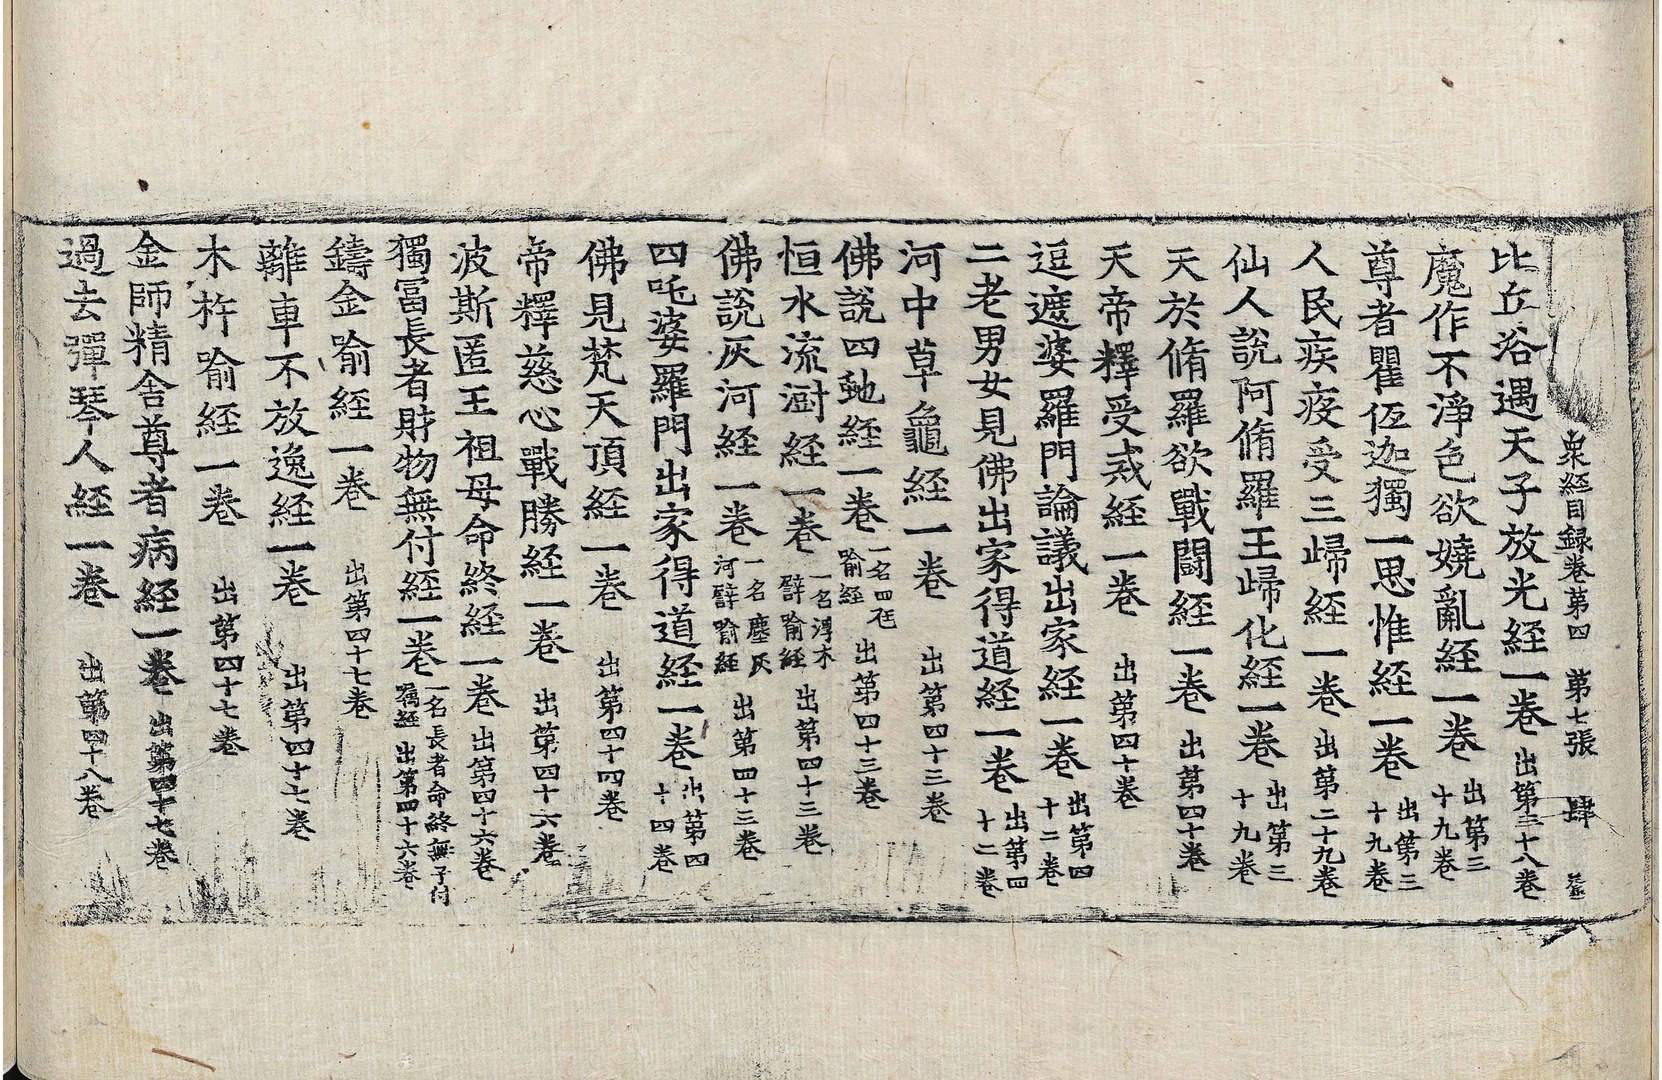 衆経目録卷第四 第七張 肆
比丘浴遇天子放光経一卷 出第三十八卷
魔作不淨色欲嬈亂経一卷 出第三十九卷
尊者瞿伍迦獨一思惟経一卷 出第三十九卷
人民疾疫受三歸経一卷 出第二十九卷
仙人説阿脩羅王歸化経一卷 出第三十九卷
天於脩羅欲戰鬪経一卷 出第四十卷
天帝釋受戒経一卷 出第四十卷
逗遮婆羅門論議出家経一卷 出第四十二卷
二老男女見佛出家得道経一卷 出第四十二卷
河中草龜経一卷 出第四十三卷
佛説四虵経一卷 一名四虵喻経 出第四十三卷
恒水流澍経一卷 一名浮木譬喻経 出第四十三卷
佛説灰河経一卷 一名塵灰河譬喻経 出第四十三卷
四吒婆羅門出家得道経一卷 出第四十四卷
佛見梵天頂経一卷 出第四十四卷
帝釋慈心戰勝経一卷 出第四十六卷
波斯匿王祖母命終経一卷 出第四十六卷
獨富長者財物無付経一卷 一名長者命終無子付囑経 出第四十六卷
鑄金喻経一卷 出第四十七卷
離車不放逸経一卷 出第四十七卷
木杵喻経一卷 出第四十七卷
金師精舍尊者病経一卷 出第四十七卷
過去彈琴人経一卷 出第四十八卷